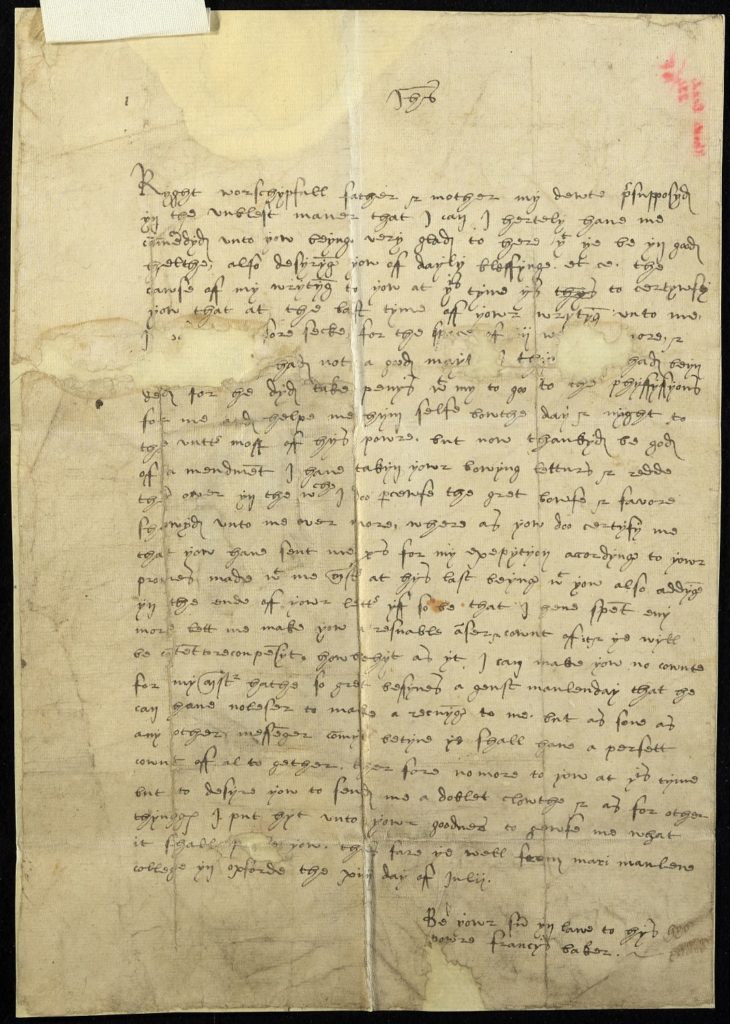 Jhs
Ryght worschypfull father & mother my dewte p'supposyd
yn the vmblest maner that I can I hertely have me
cōmēdyd vnto yow beyng very glad to here yt ye be yn good
helthe, also desyryng yow of dayly blessynge. et ce. the
cawse off my wrytyng to yow at ys tyme ys to certywfy
yow that at the last tyme off yowr wrytyng vnto me,
I sore secke, for the space of ij more, &
had not a good mayst had beyn
ded for he dyd take penys wt my to goo to the physysyons
for me and helpe me hym selfe bowthe day & nyght to
the vtte most off hys powre. but now thankyd be god
of a mendmēt I have takyn yowr lovyng letturs & redde
them over yn the wche I doo p'cewse the gret lowfe & favore
showyd vnto me ever more, where as yow doo certyfy me
that yow have sent me xs for my expēsyon acordynge to yowr
promes made wt me at hys last beyng wt yow also addyng
yn the ende off yowr lettr yf so be that I have spēt eny
more lett me make yow a resnable cownt off itt & ye wyll
be cōtēt to reconpensyt, howbehyt as yt I can make yow no cownte
for my mstr hathe so gret besynes a genst maulenday that he
can have no leser to make a recnyng to me. but as sone as
any other messēger comyt betyne ye shall have a perfett
cownt off al to gether. ther fore no more to yow at ys tyme
but to desyre yow to send me a doblet clowthe & as for other
thynggs I put hyt vnto yowr goodnes to gewfe me what
it shall yow. thus fare ye well from mari maulene
college yn oxforde the xiij day of Julij.
Be yowr sū yn lawe to hys
powre francys baker.